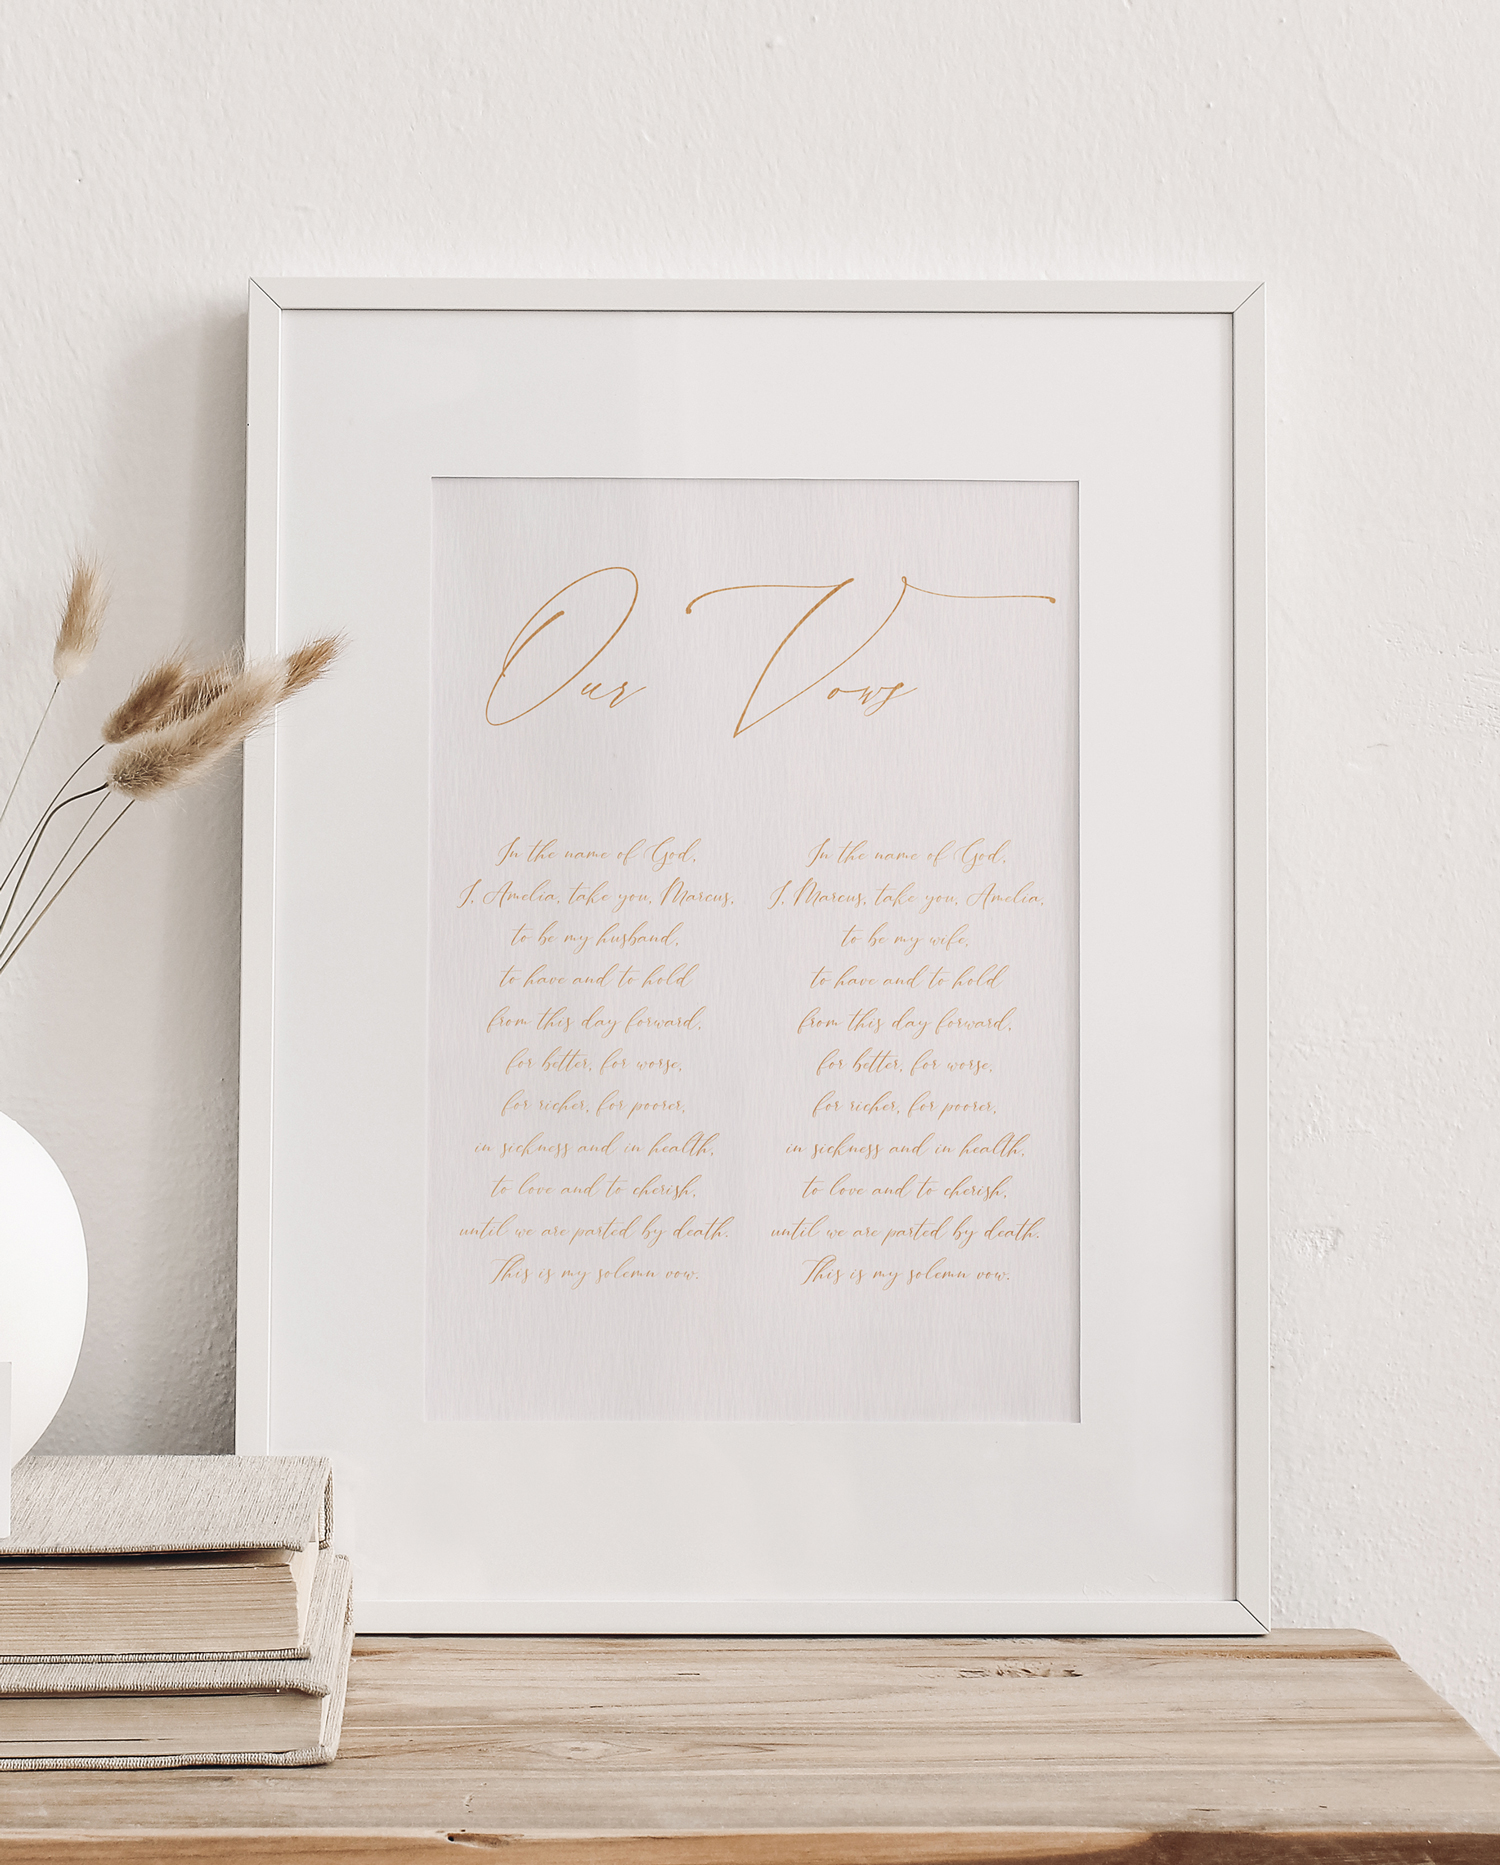 Our Vows
In the name of God,
I, Amelia, take you, Marcus,
to be my husband,
to have and to hold
from this day forward,
for better, for worse,
for richer, for poorer,
in sickness and in health,
to love and to cherish,
until we are parted by death.
This is my solemn vow.
In the name of God,
I, Marcus, take you, Amelia,
to be my wife,
to have and to hold
from this day forward,
for better, for worse,
for richer, for poorer,
in sickness and in health,
to love and to cherish,
until we are parted by death.
This is my solemn vow.